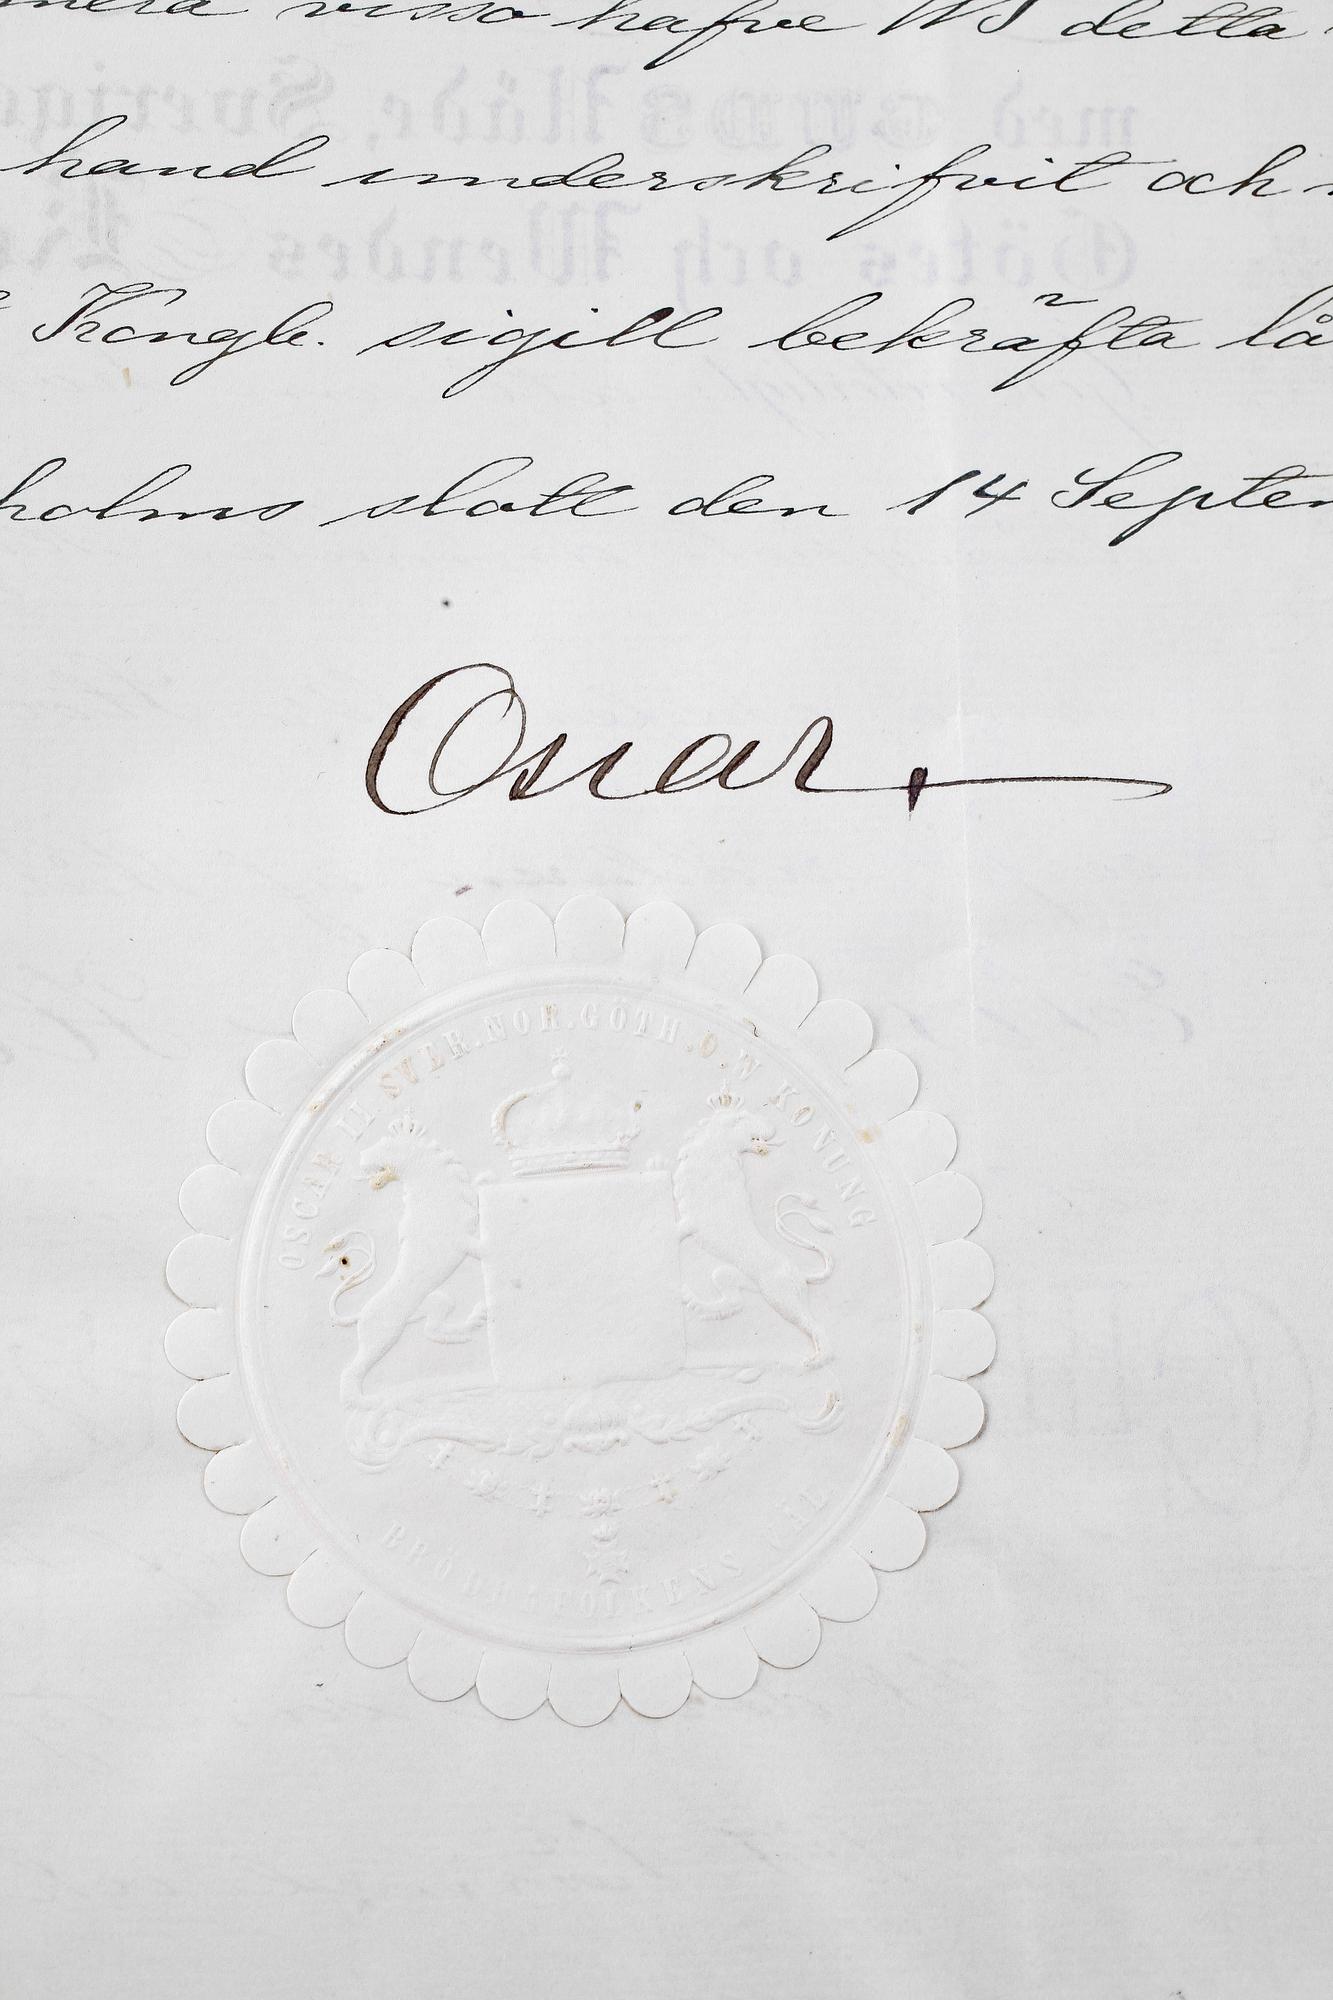 mera visso hafve Wi detta
hand underskrifvit och
Kongl. sigill bekräfta lå
holms slott den 14 Septem
Oscar
OSCAR II. SVER. NOR. GÖTH. O. W KONUNG
BRÖDRAFOLKENS VÄL
med GUDS Nåde, Sverige
Götes och Wendes